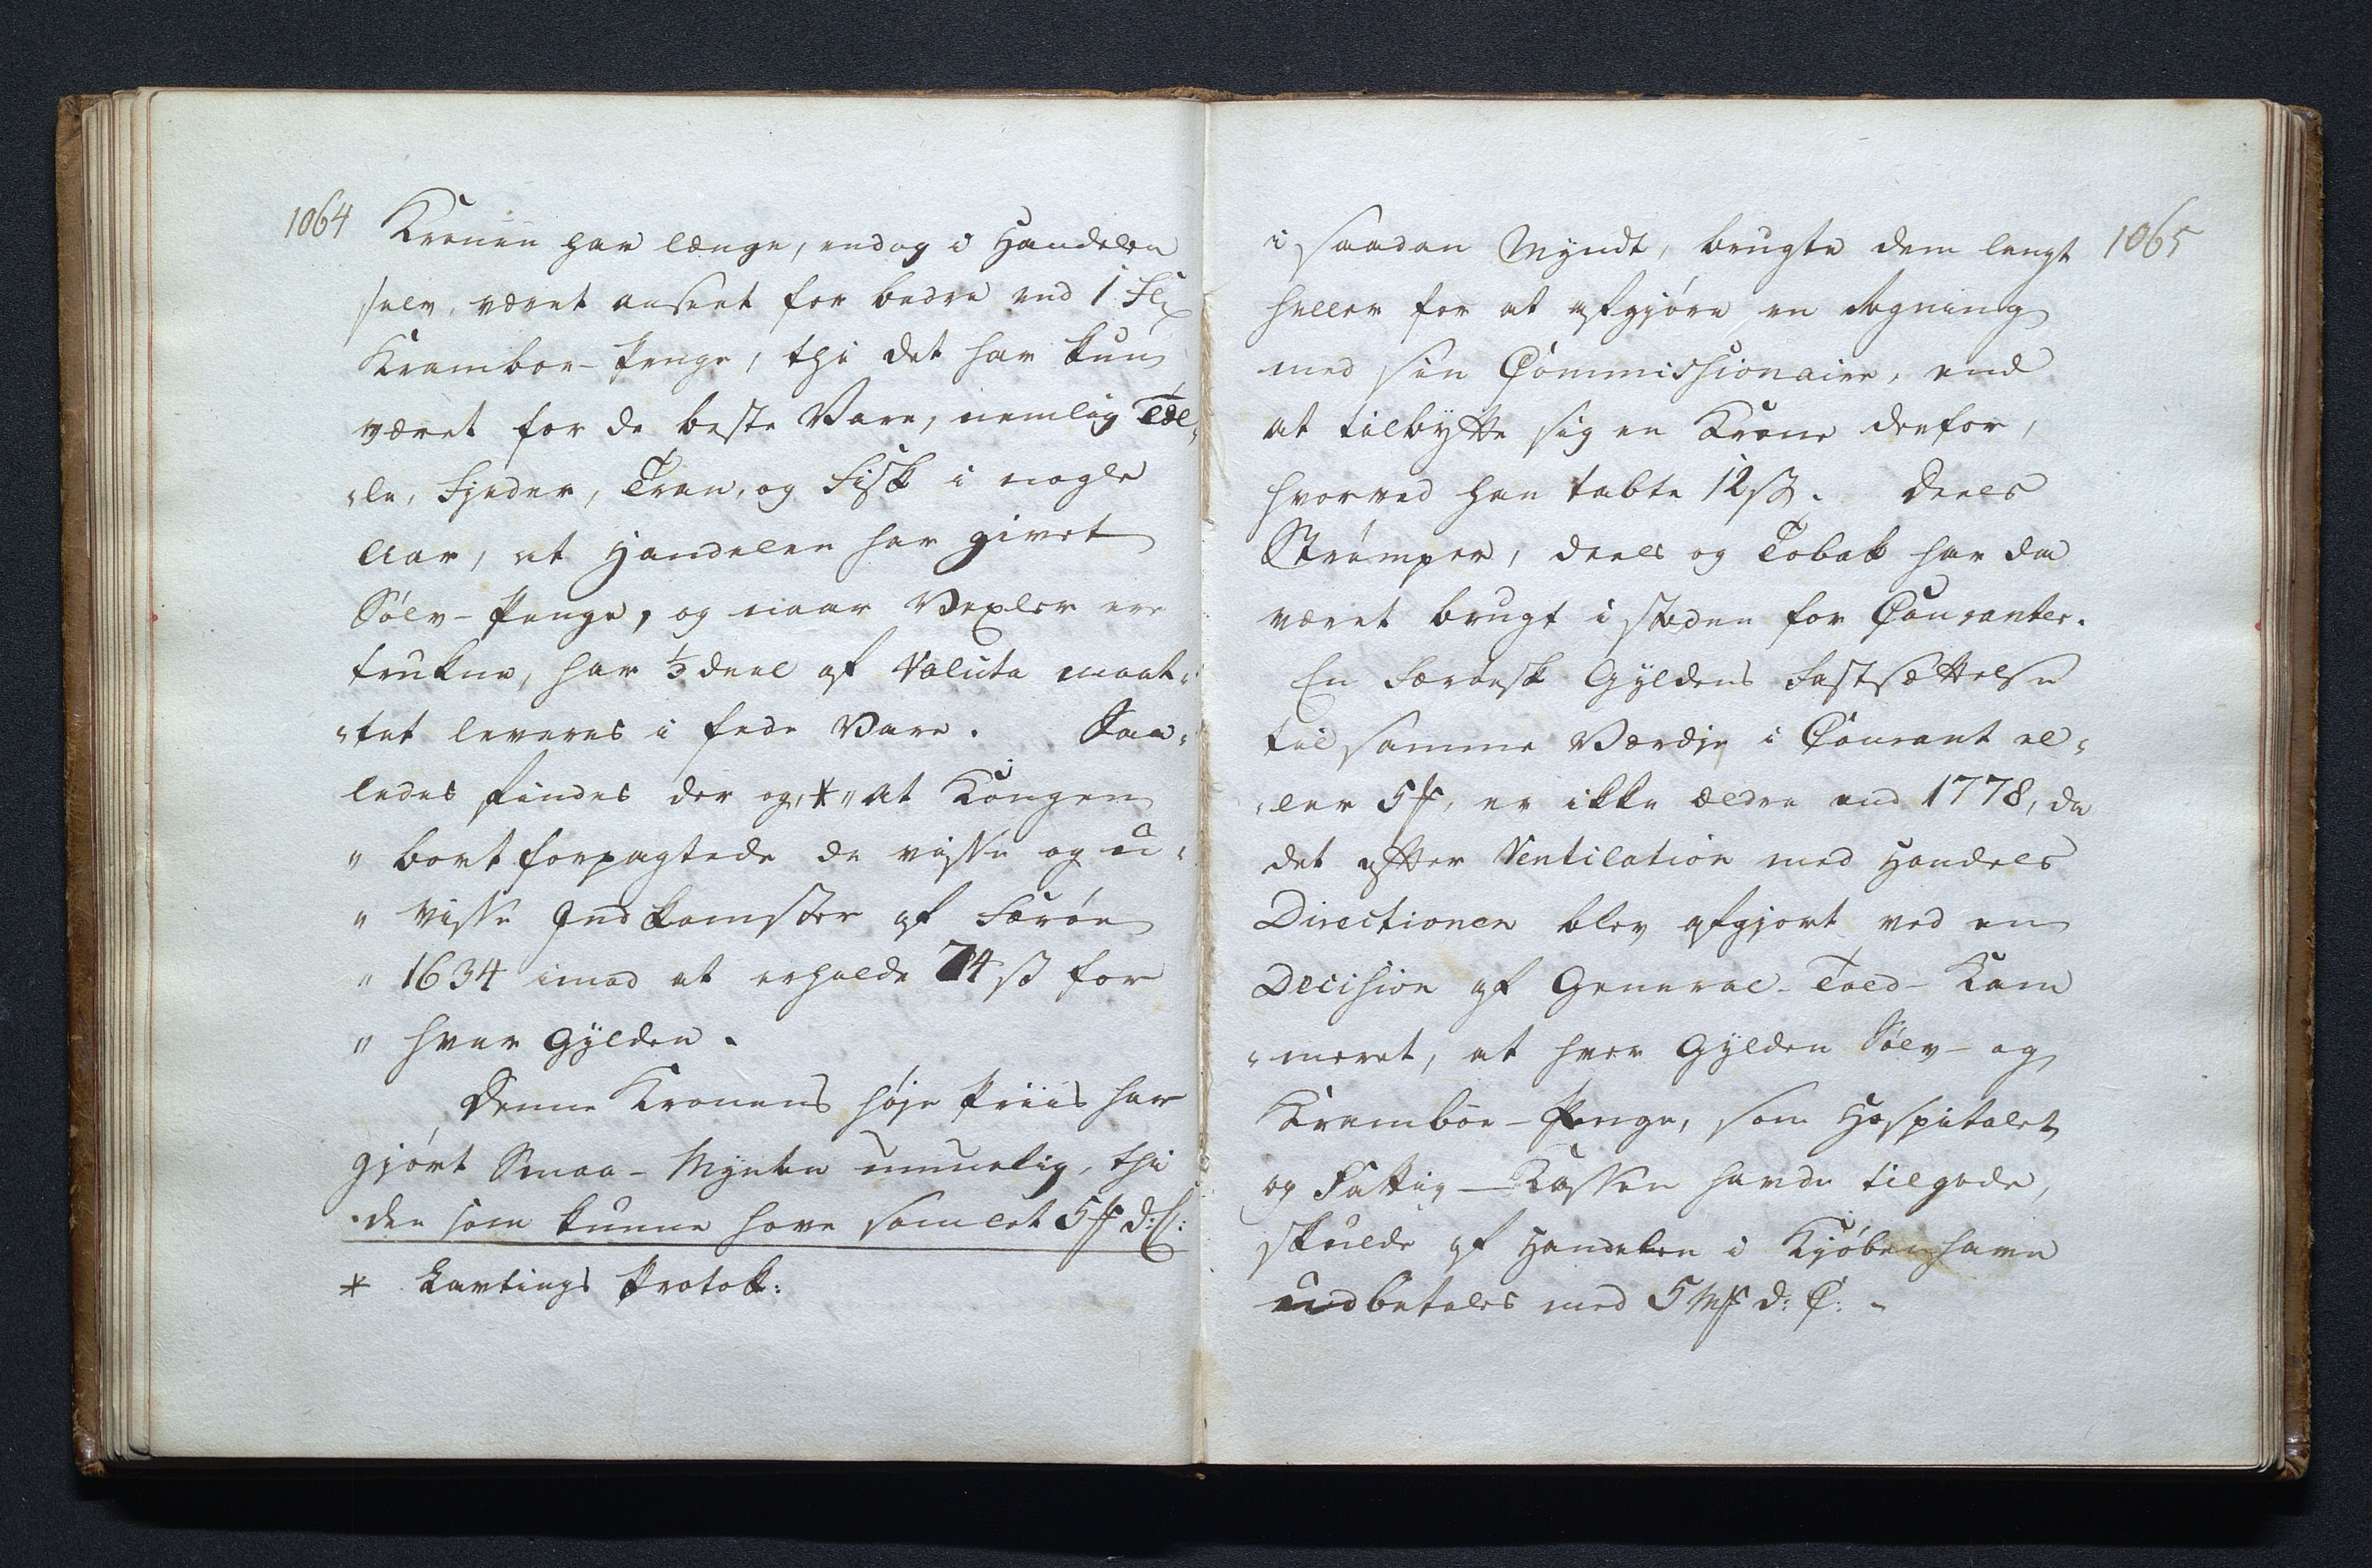 1064
Kronen har længe, endog i Handelen
selv, været anseet for bedre end 1 Fl
Kramboe-Penge, thi det har kun
været for de beste Vare, nemlig Tæl-
-le, Fjeder, Tran, og Fisk i nogle
Aar, at Handelen har givet
Sölv-Penge, og naar Vexler ere
trukne, har ⅓ deel af Valuta maat-
-tet leveres i fede Vare. Saa-
ledes findes der og, * "at Kongen
" bortforpagtede de visse og u-
" visse Indkomster af Færöe
" 1634 imod at erholde 74 ß for
" hver Gylden.
Denne Kronens höje Priis har
gjört Smaa-Mynten umuelig, thi
den som kunne have samlet 5 ℳ d: C:
* Lavtings Protok:
1065
i saadan Myndt, brugte dem langt
heller for at afgjöre en Regning
med sin Commissionaire, end
at tilbytte sig en Krone derfor,
hvorved han tabte 12 ß. Deels
Strömper, deels og Tobak har da
været brugt i steden for Couranter.
En Færöesk Gyldens Fastsættelse
til samme Værdie i Courant el-
-ler 5 ℳ, er ikke ældre end 1778, da
det efter Ventilation med Handels
Directionen blev afgjort ved en
Decision af General-Told-Kam
-meret, at hver Gylden Sölv- og
Kramboe-Penge, som Hospitalet
og Fattig-Kassen havde tilgode,
skulde af Handelen i Kjöbenhavn
udbetales med 5 Mℳ d: C: -